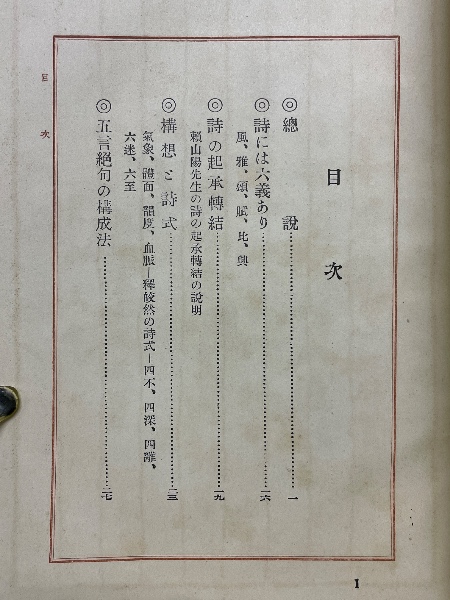 目次
◎總說……一
◎詩には六義あり……一六
風、雅、頌、賦、比、興
◎詩の起承轉結……一九
賴山陽先生の詩の起承轉結の說明
◎構想と詩式……二三
氣象、體面、韻度、血脈―釋皎然の詩式―四不、四深、四離、
六迷、六至
◎五言絕句の構成法……二七
目次
1